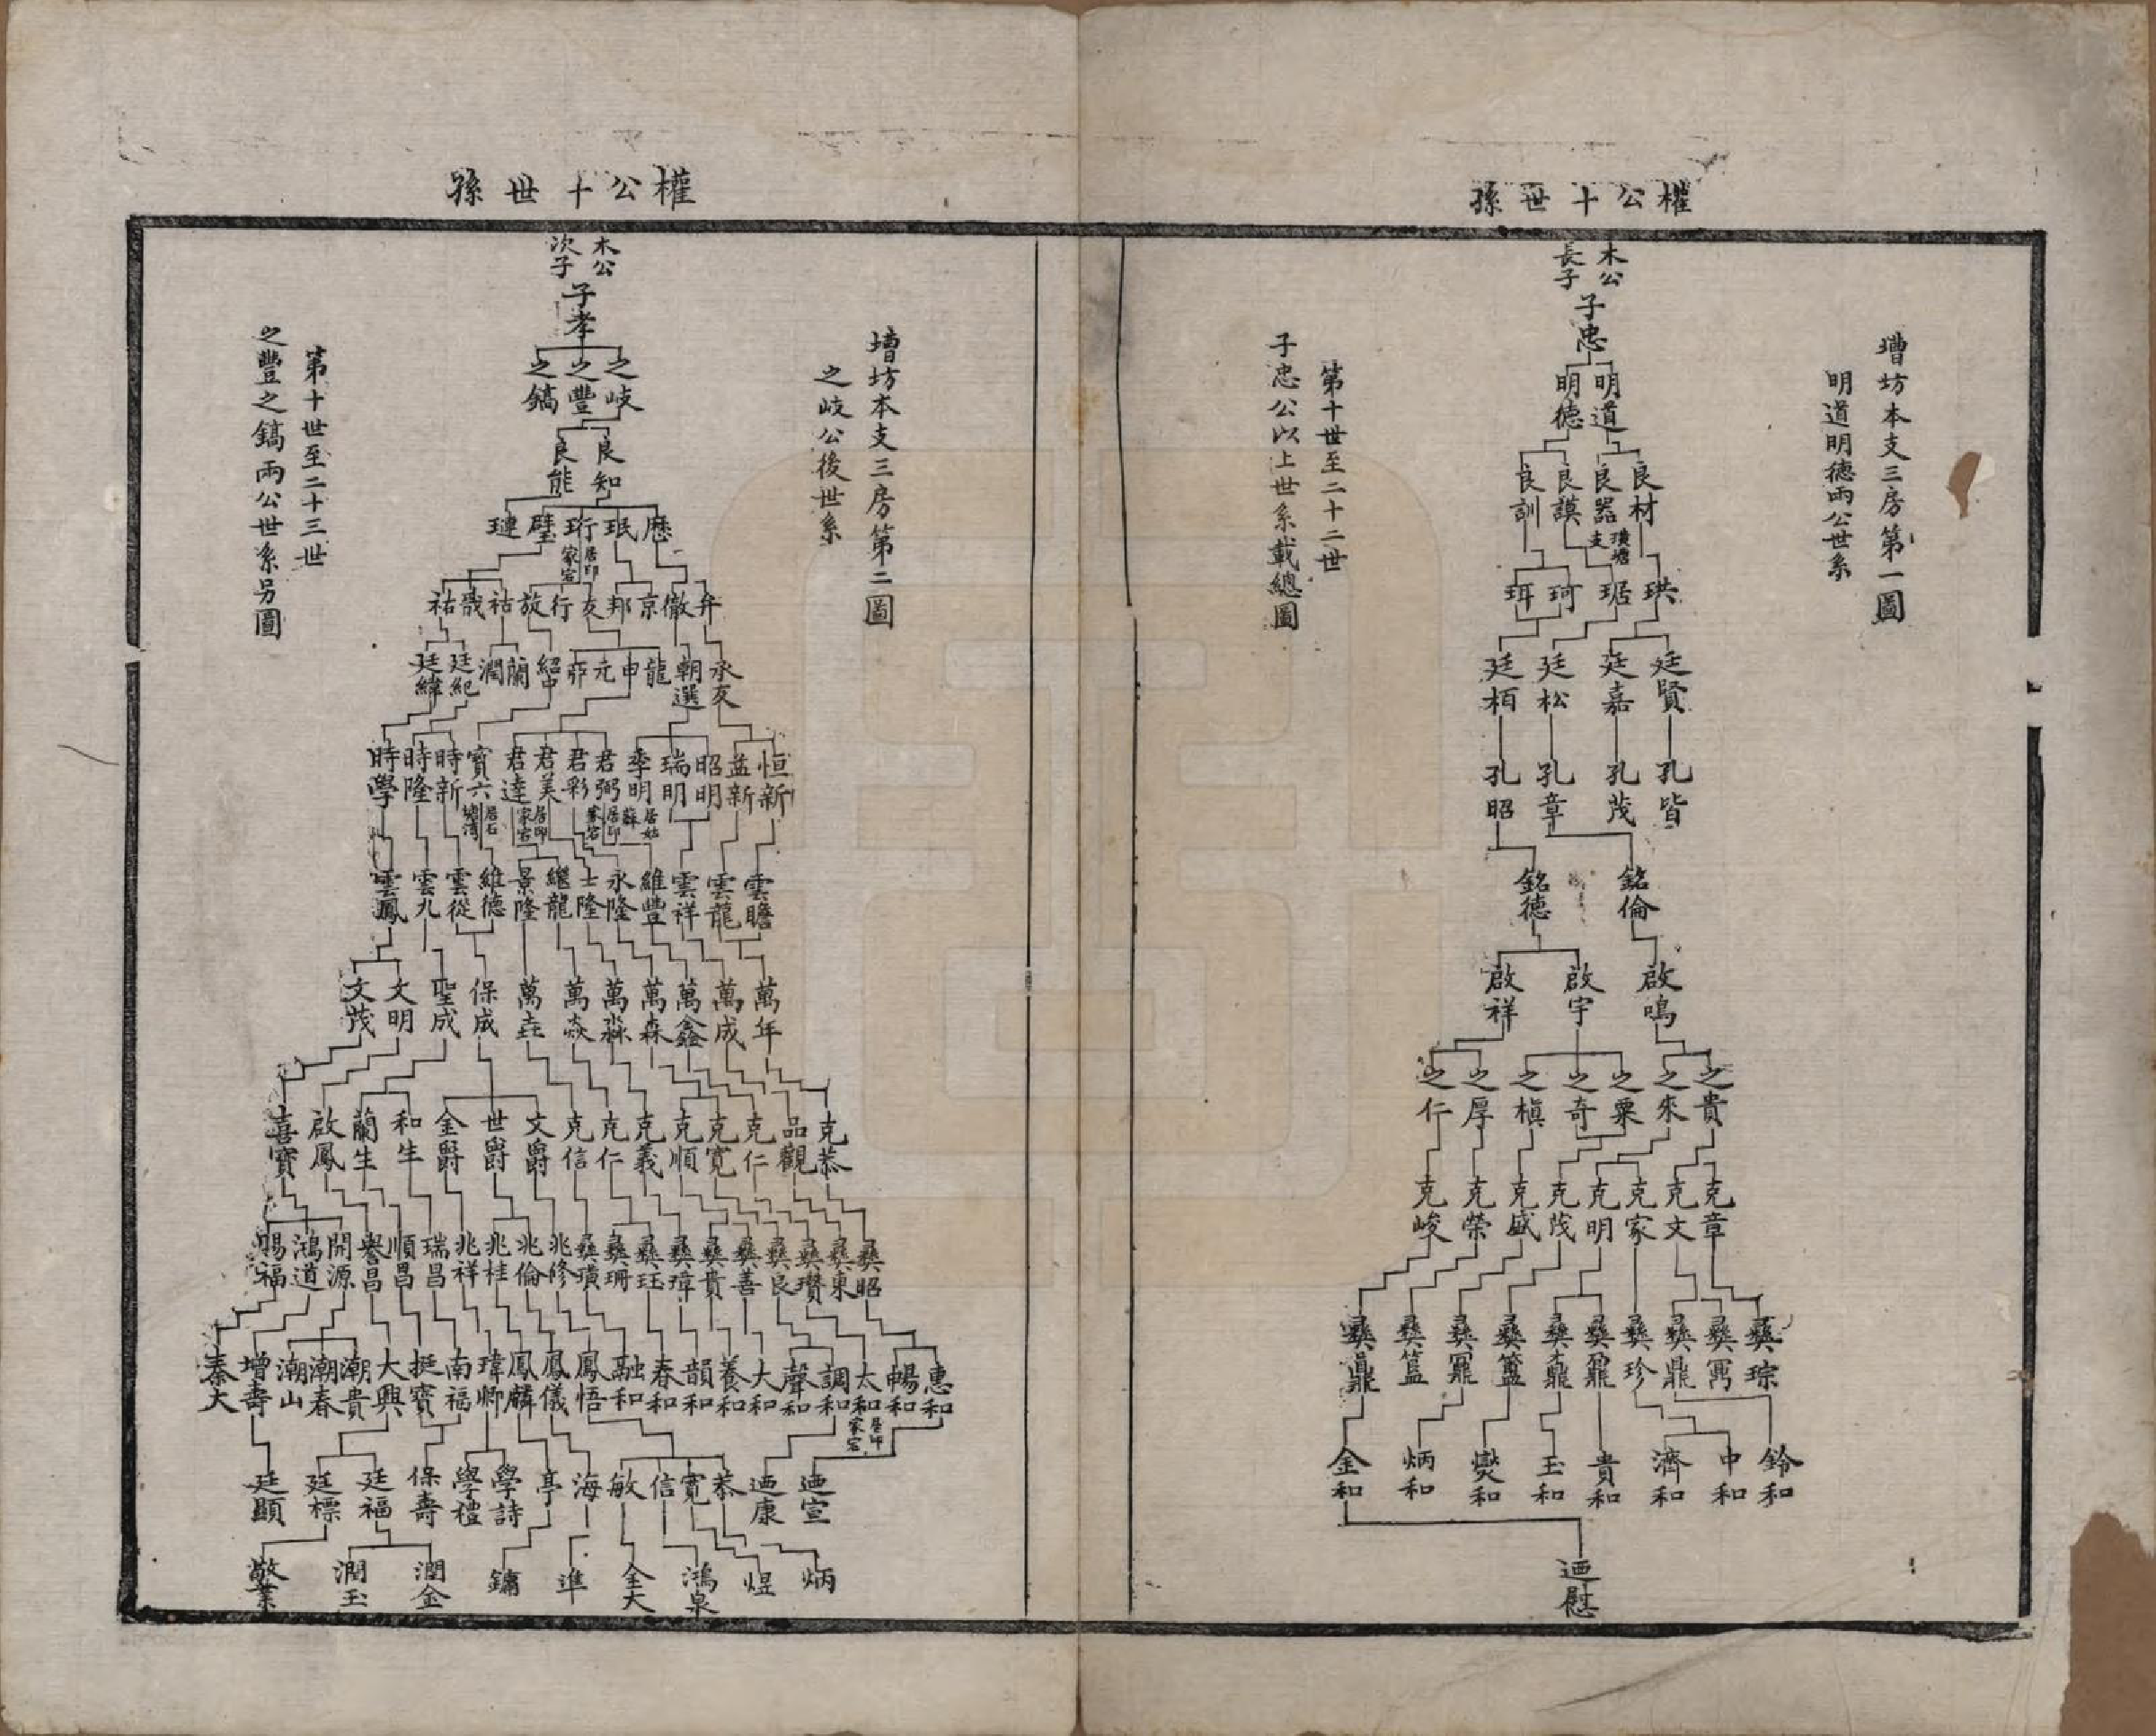 權公十世孫
木公
長子
子忠
墻坊本支三房第一圖
明道明德兩公世系
第十世至二十二世
子忠公以上世系載總圖
明道 明德
良材 良器 良謨 良訓
璜塘
支
珙 琚 珂 珥
廷賢 廷嘉 廷松 廷栢
孔皆 孔茂 孔章 孔昭
銘倫 銘德
啟鳴 啟宇 啟祥
之貴 之來 之粟 之奇 之槙 之厚 之仁
克章 克文 克家 克明 克茂 克盛 克榮 克峻
彝琮 彝鼎 彝珍 彝鼐 彝簠 彝簋
鈴和 中和 濟和 貴和 玉和 燮和 炳和 金和
迺慰
權公十世孫
木公
次子
子孝
墻坊本支三房第二圖
之岐公後世系
第十世至二十三世
之豐之鎬兩公世系另圖
之岐 之豐 之鎬
良知 良能
歷 珉 珩 璧 璉
居印
家宕
弁 徹 京 邦 友 行 放 祜 哉 祐
永友 朝選 龍 申 元 昴 紹中 蘭 潤 廷紀 廷緯
恒新 益新 昭明 瑞明 季明 君弼 君彩 君美 君達 寶六 時新 時隆 時學
居姑
蘇
居印
家宕
居印
家宕
居石
塘湾
雲瞻 雲龍 雲祥 維豐 永隆 士隆 繼龍 景隆 維德 雲從 雲九 雲鳳
萬年 萬成 萬鑫 萬森 萬淼 萬焱 萬垚 保成 聖成 文明 文茂
克恭 品觀 克仁 克寬 克順 克義 克仁 克信 文爵 世爵 金爵 和生 蘭生 啟鳳 喜寶
彝昭 彝東 彝瓚 彝良 彝善 彝貴 彝璋 彝珏 彝珊 彝璜 兆修 兆倫 兆桂 兆祥 瑞昌 順昌 譽昌 開源 鴻道 賜福
惠和 暢和 太和 調和 聲和 大和 養和 韻和 春和 融和 鳳悟 鳳儀 鳳麟 瑋卿 南福 挺寶 大興 潮貴 潮春 潮山 增壽 秦大
居印
家宕
迺宣 迺康 恭 寬 信 敏 海 亭 學詩 學禮 保壽 廷福 廷標 廷顯
炳 煜 鴻泉 全大 進 鏞 潤金 潤玉 敬業